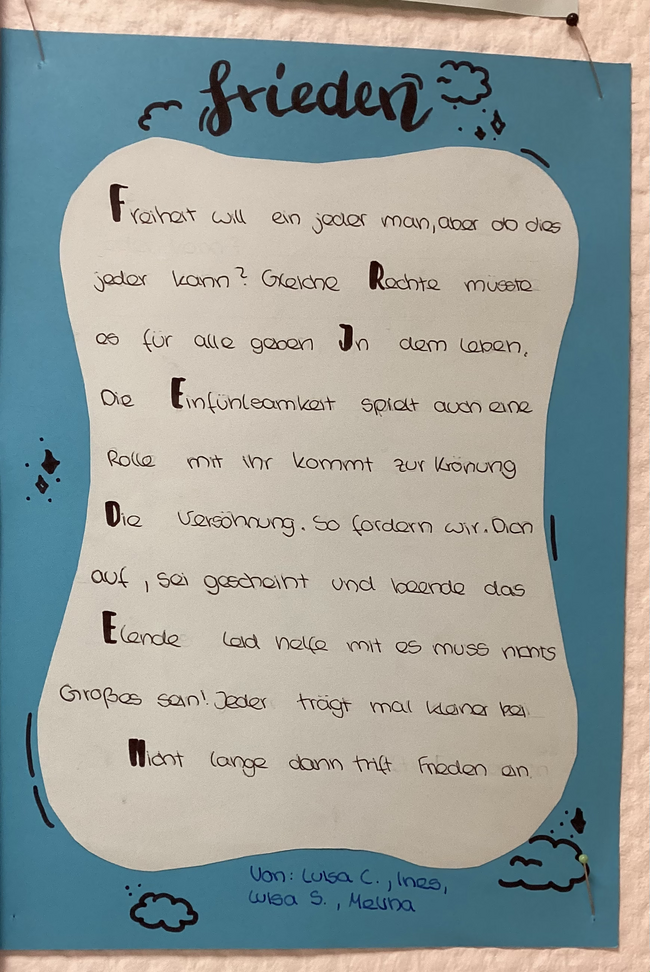 frieden
Freiheit will ein jeder man, aber ob dies
jeder kann? Gleiche Rechte müsste
es für alle geben In dem Leben.
Die Einfühlsamkeit spielt auch eine
Rolle mit ihr kommt zur Krönung
Die Versöhnung. So fordern wir. Dich
auf, sei gescheiht und beende das
Elende Leid helfe mit es muss nichts
Großes sein! Jeder trägt mal kleiner bei
Nicht lange dann trift Frieden ein.
Von: Luisa C., Ines,
Luisa S., Melina